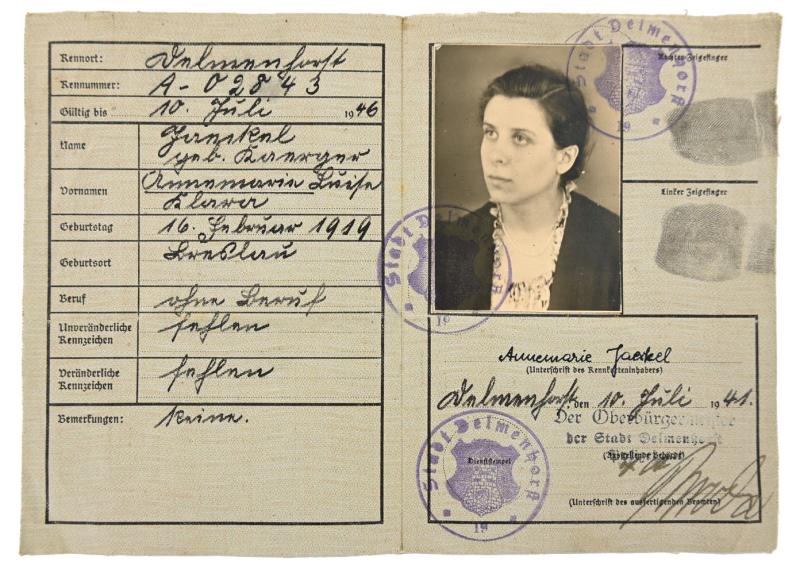 Kennort: Delmenhorst
Kennummer: A-02843
Gültig bis 10. Juli 1946
Name Jaeckel
geb. Kaerger
Vornamen Annemarie Luise
Klara
Geburtstag 16. Februar 1919
Geburtsort Breslau
Beruf ohne Beruf
Unveränderliche Kennzeichen fehlen
Veränderliche Kennzeichen fehlen
Bemerkungen: Keine.
Stadt Delmenhorst
19
Rechter Zeigefinger
Linker Zeigefinger
Stadt Delmenhorst
19
Annemarie Jaeckel
(Unterschrift des Kennkarteninhabers)
Delmenhorst, den 10. Juli 1941.
Der Oberbürgermeister
der Stadt Delmenhorst
Stadt Delmenhorst
Dienststempel
19
(Unterschrift des ausfertigenden Beamten)